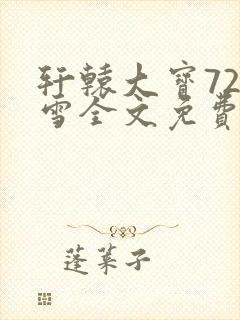 轩辕大宝72
雪全文免费
蓬莱子